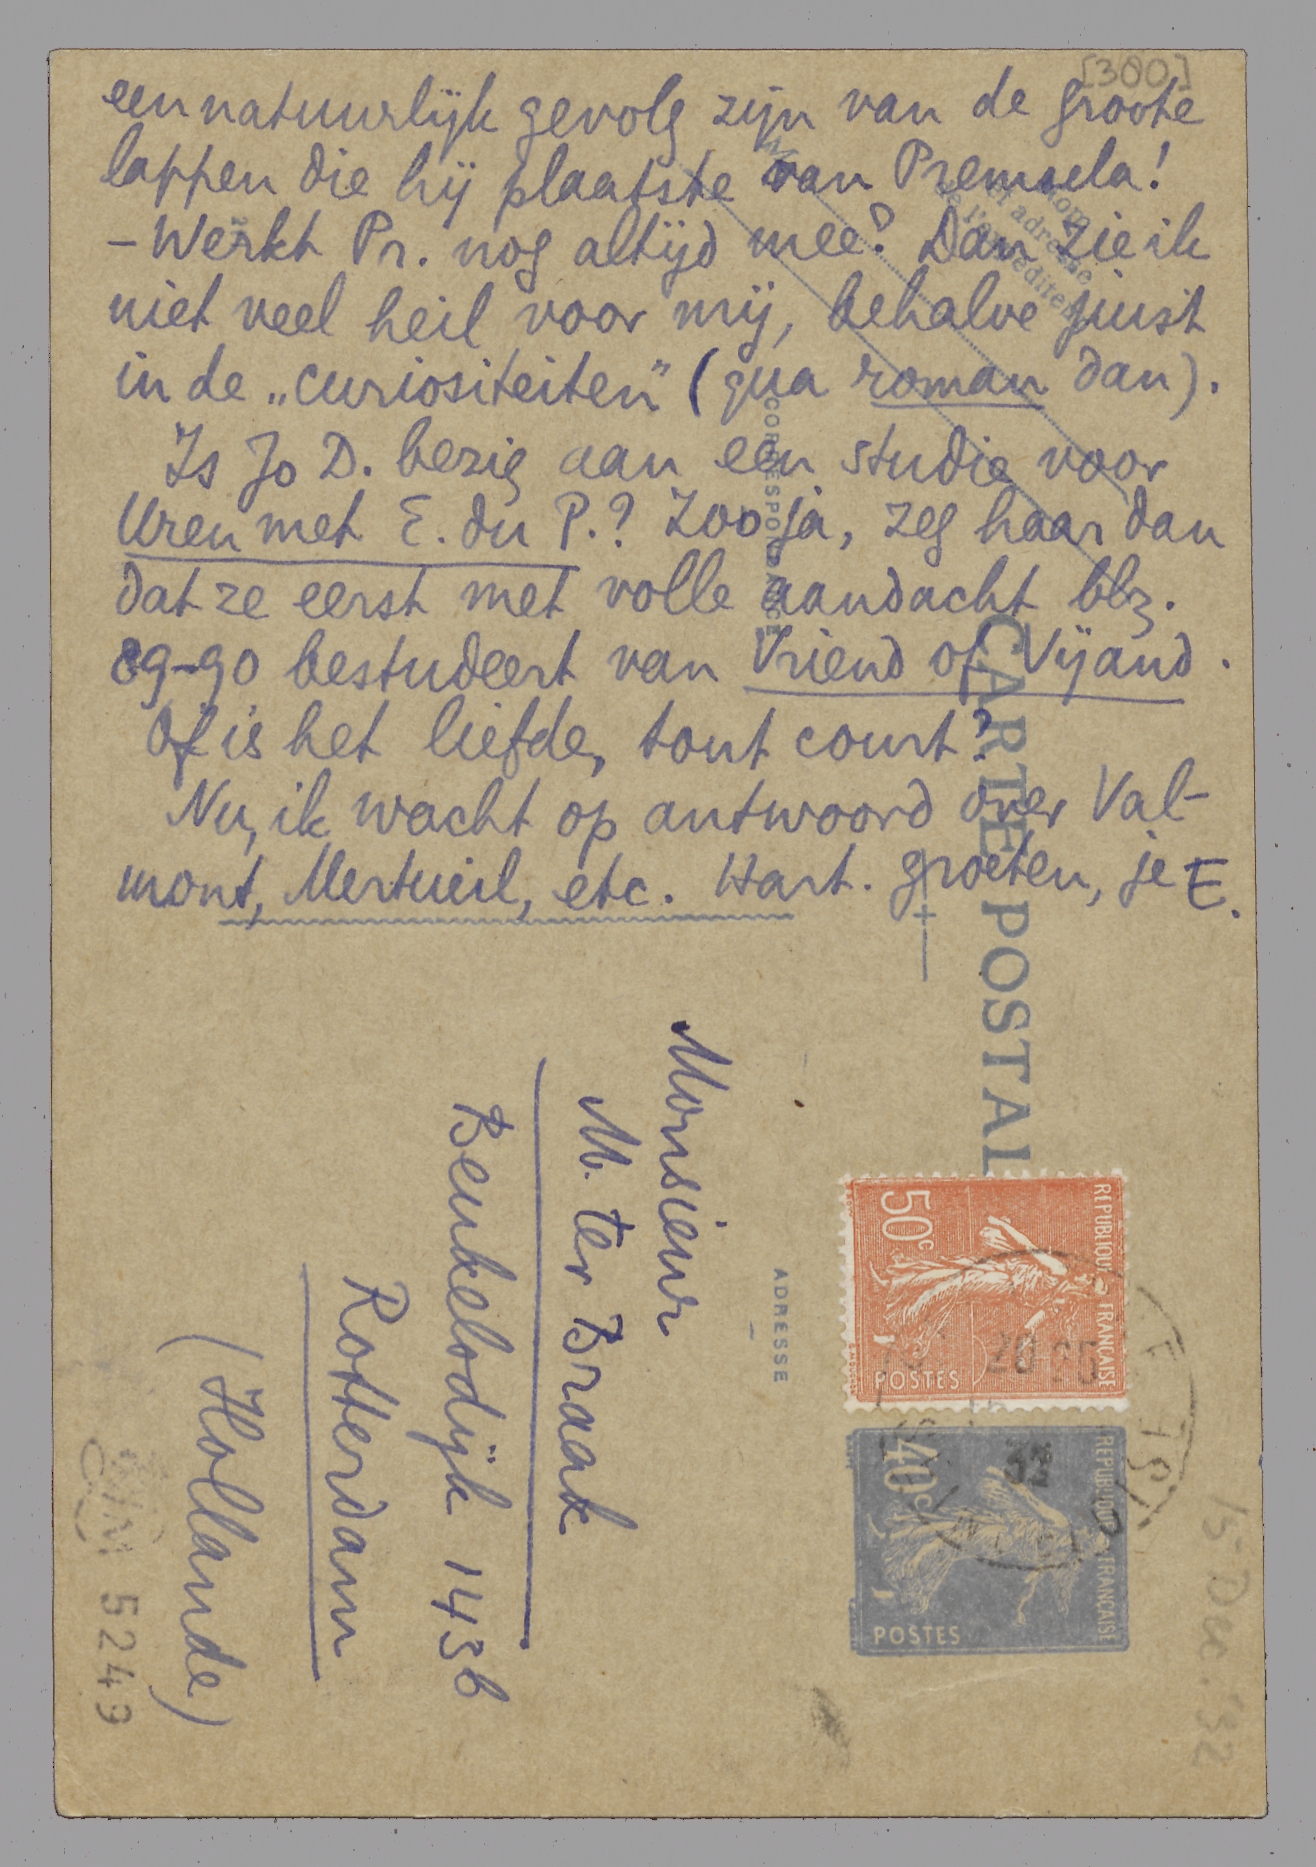 [380]
een natuurlijk gevolg zijn van de groote
lappen die hij plaatste van Premsela!
– Werkt Pr. nog altijd mee? Dan zie ik
niet veel heil voor mij, behalve juist
in de „curiositeiten” (qua roman dan).
Is Jo D. bezig aan een studie voor
Uren met E. du P.? Zoo ja, zeg haar dan
dat ze eerst met volle aandacht blz.
89-90 bestudeert van Vriend of Vijand.
Of is het liefde, tout court?
Nu, ik wacht op antwoord over Val-
mont, Merteuil, etc. Hart. groeten, je E.
Nom
et adresse
de l'expéditeur
CORRESPONDANCE
CARTE POSTAL
ADRESSE
Monsieur
M. ter Braak
Beukelsdijk 143b
Rotterdam
(Hollande)
REPUBLIQUE FRANÇAISE
50c
POSTES
REPUBLIQUE FRANÇAISE
40c
POSTES
20 25
32
15 Dec. '32
5249